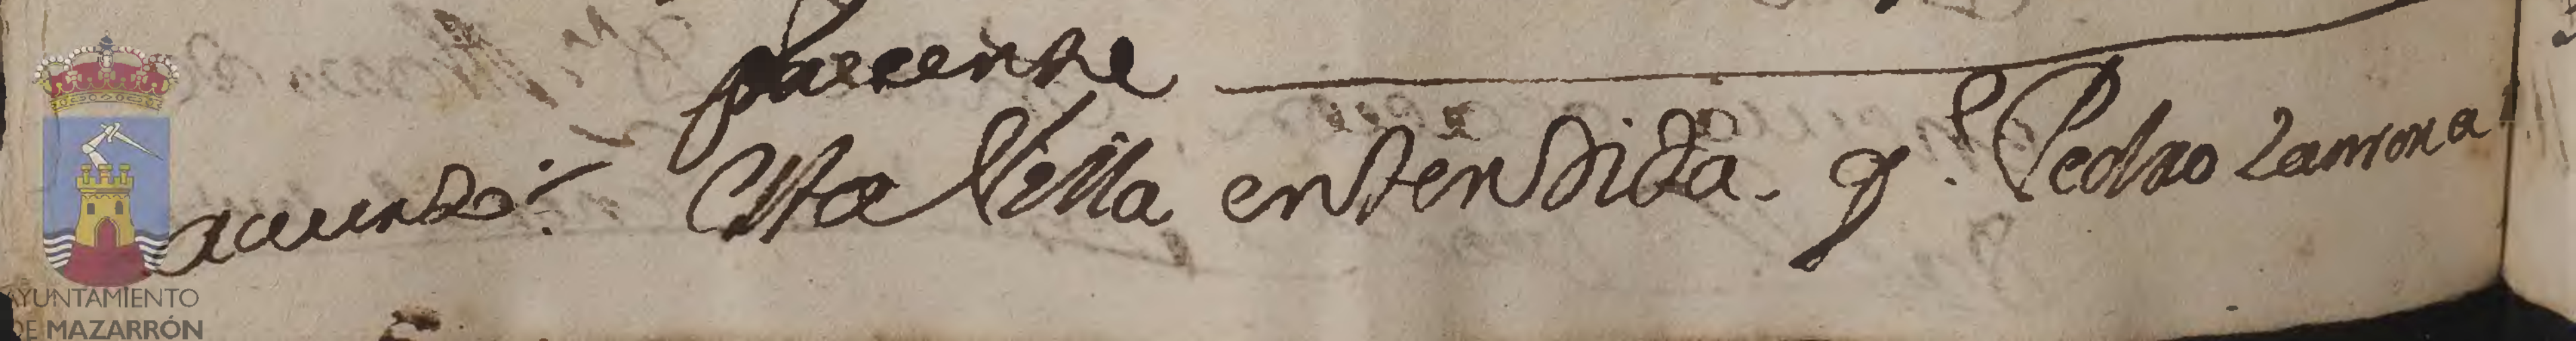 parecente
acuerdo: Esta Villa entendida. q.e Pedro Zamora
AYUNTAMIENTO
DE MAZARRÓN